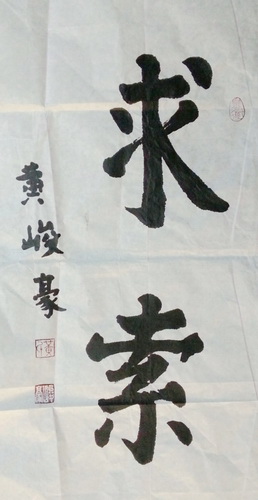 求索
黄峻豪